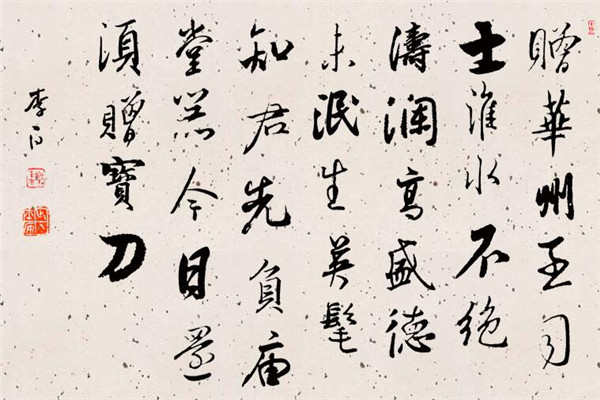 贈華州王司
士淮水不絶
濤瀾高盛德
未泯生英髦
知君先負庙
堂器今日還
須贈寶刀
李白